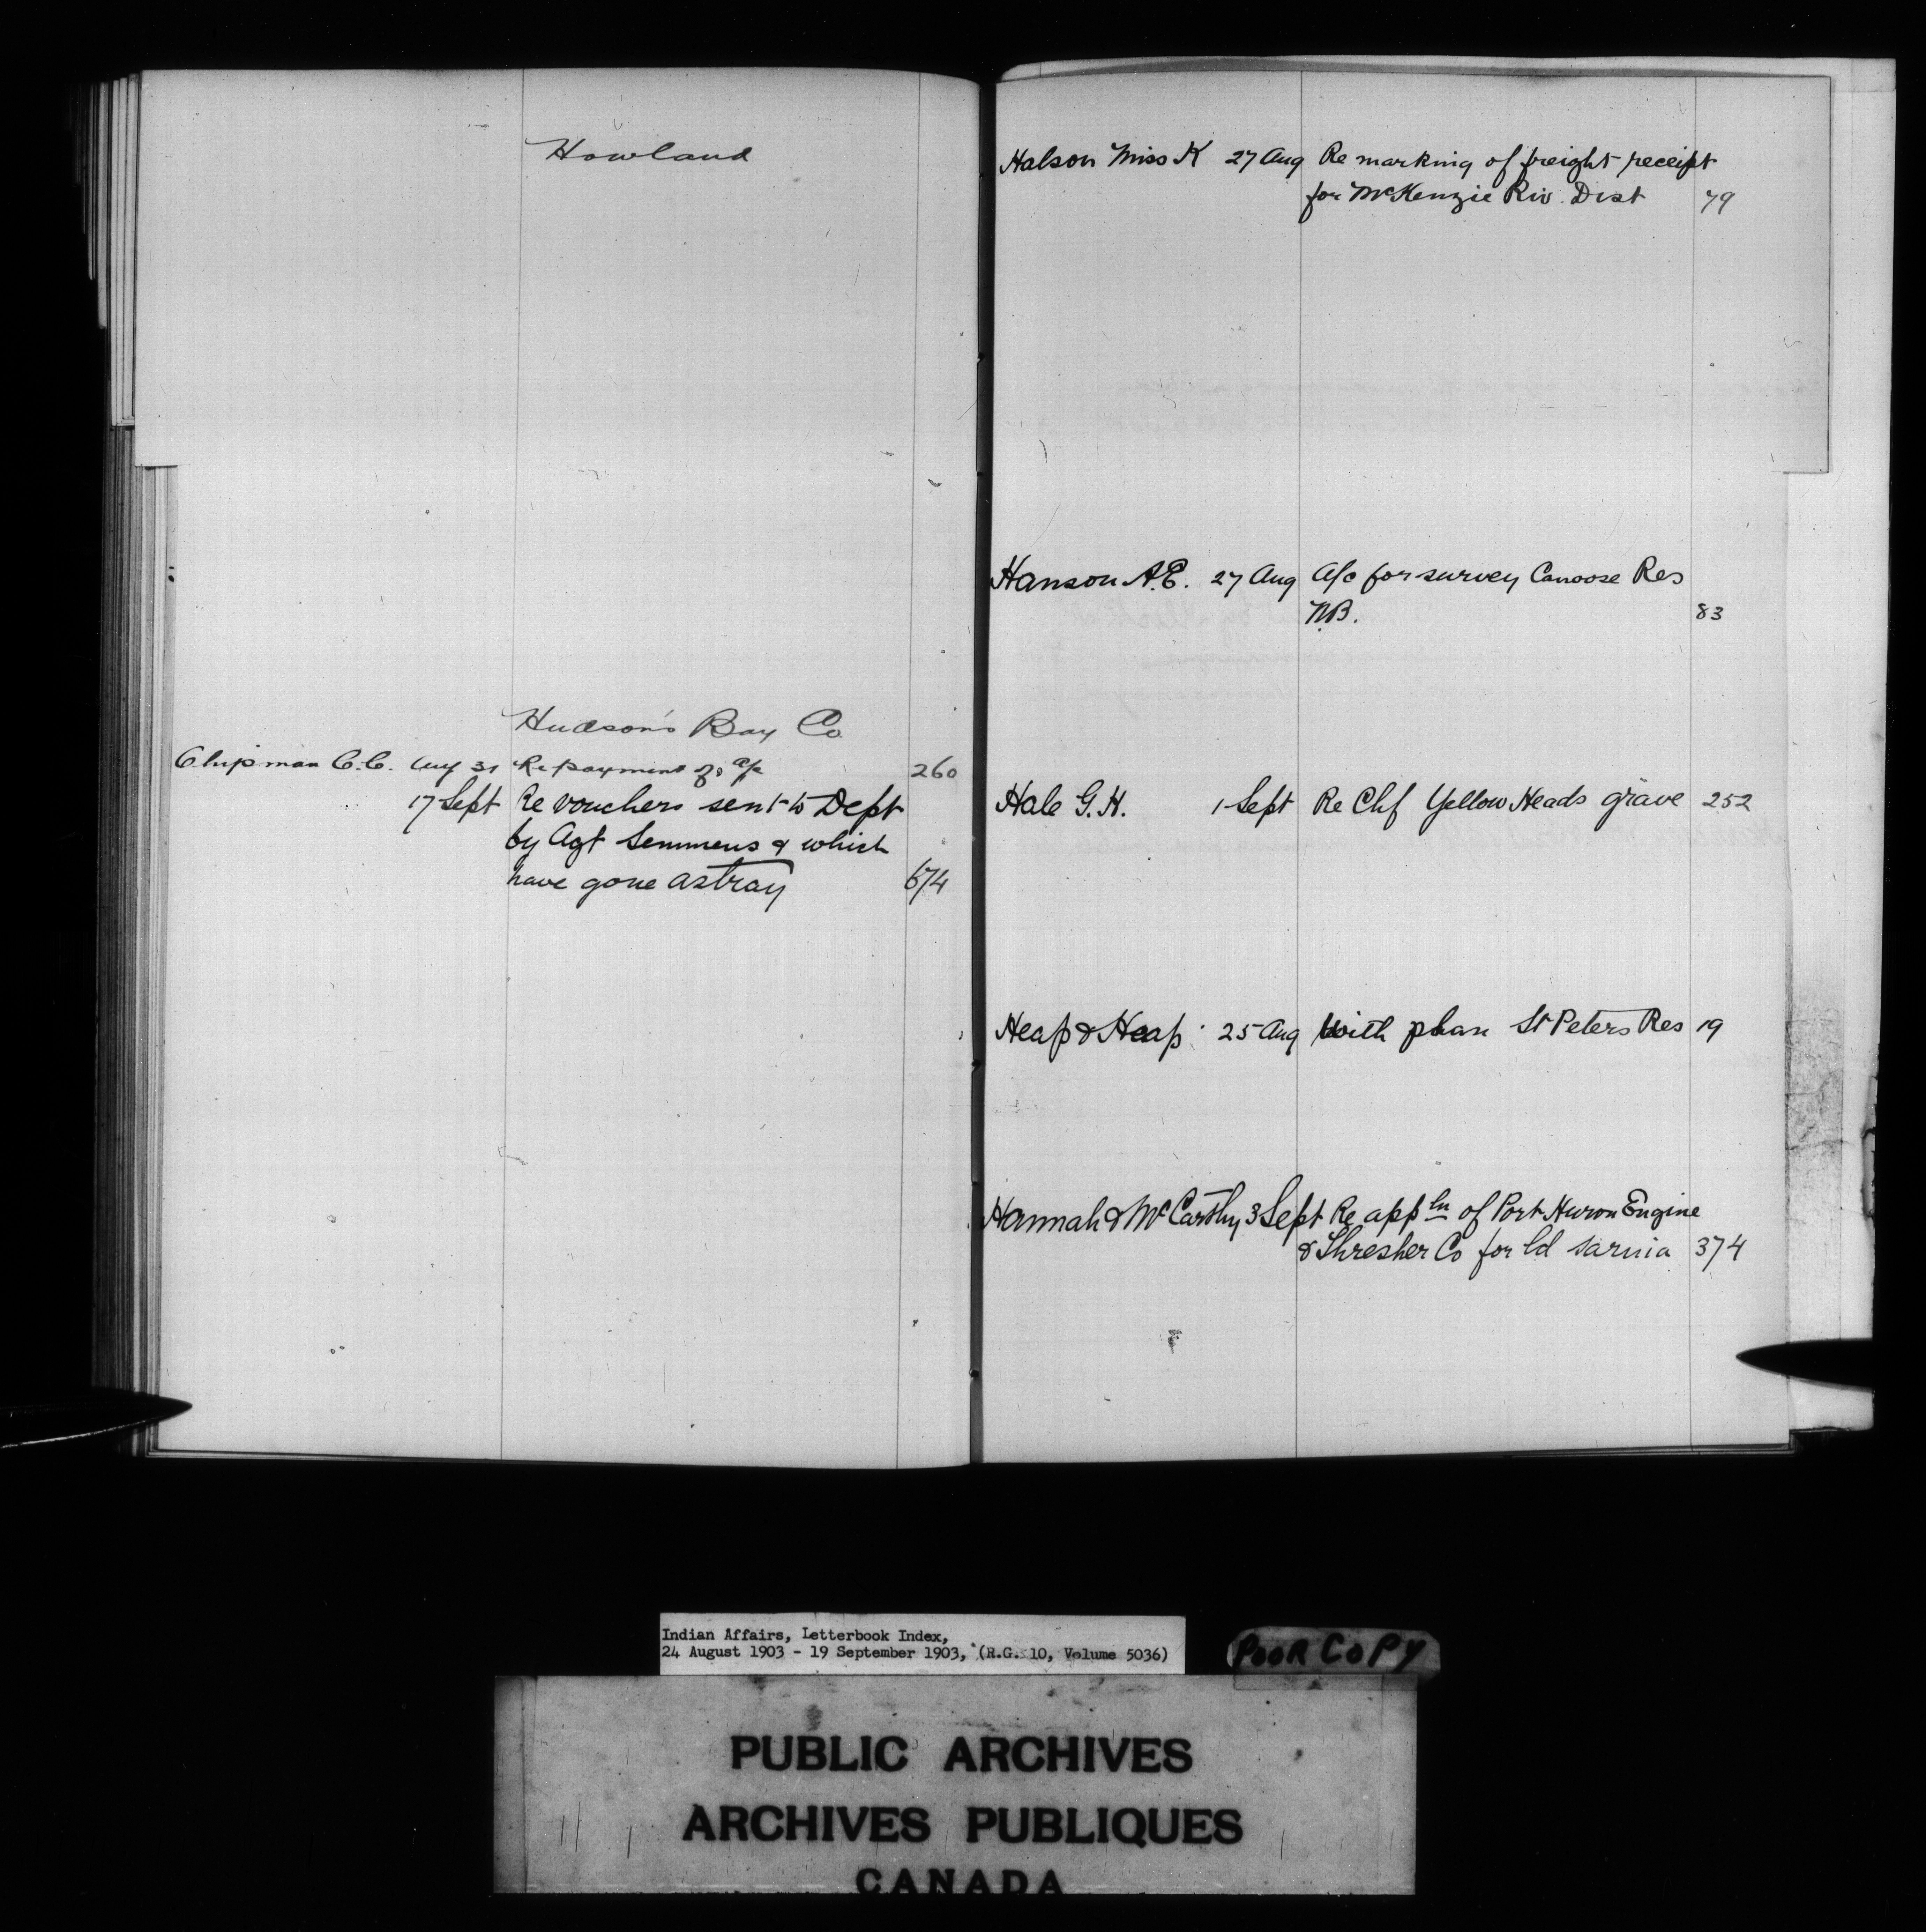 Howland
Hudson's Bay Co
Chipman C.C. Aug 31 Re payment of a/c 260
17 Sept Re vouchers sent to Dept
by Agt Semmens & which
have gone astray 674
Halson Miss K 27 Aug Re marking of freight receipt
for McKenzie Riv. Dist 79
Hanson A.E. 27 Aug A/c for survey Canoose Res
N.B. 83
Hale G.H. 1 Sept Re Chf Yellow Heads grave 252
Heap & Heap 25 Aug With plan St Peters Res 19
Hannah & McCarthy 3 Sept Re appln of Port Huron Engine
& Thresher Co for ld Sarnia 374
Indian Affairs, Letterbook Index,
24 August 1903 - 19 September 1903, (R.G. 10, Volume 5036)
POOR COPY
PUBLIC ARCHIVES
ARCHIVES PUBLIQUES
CANADA